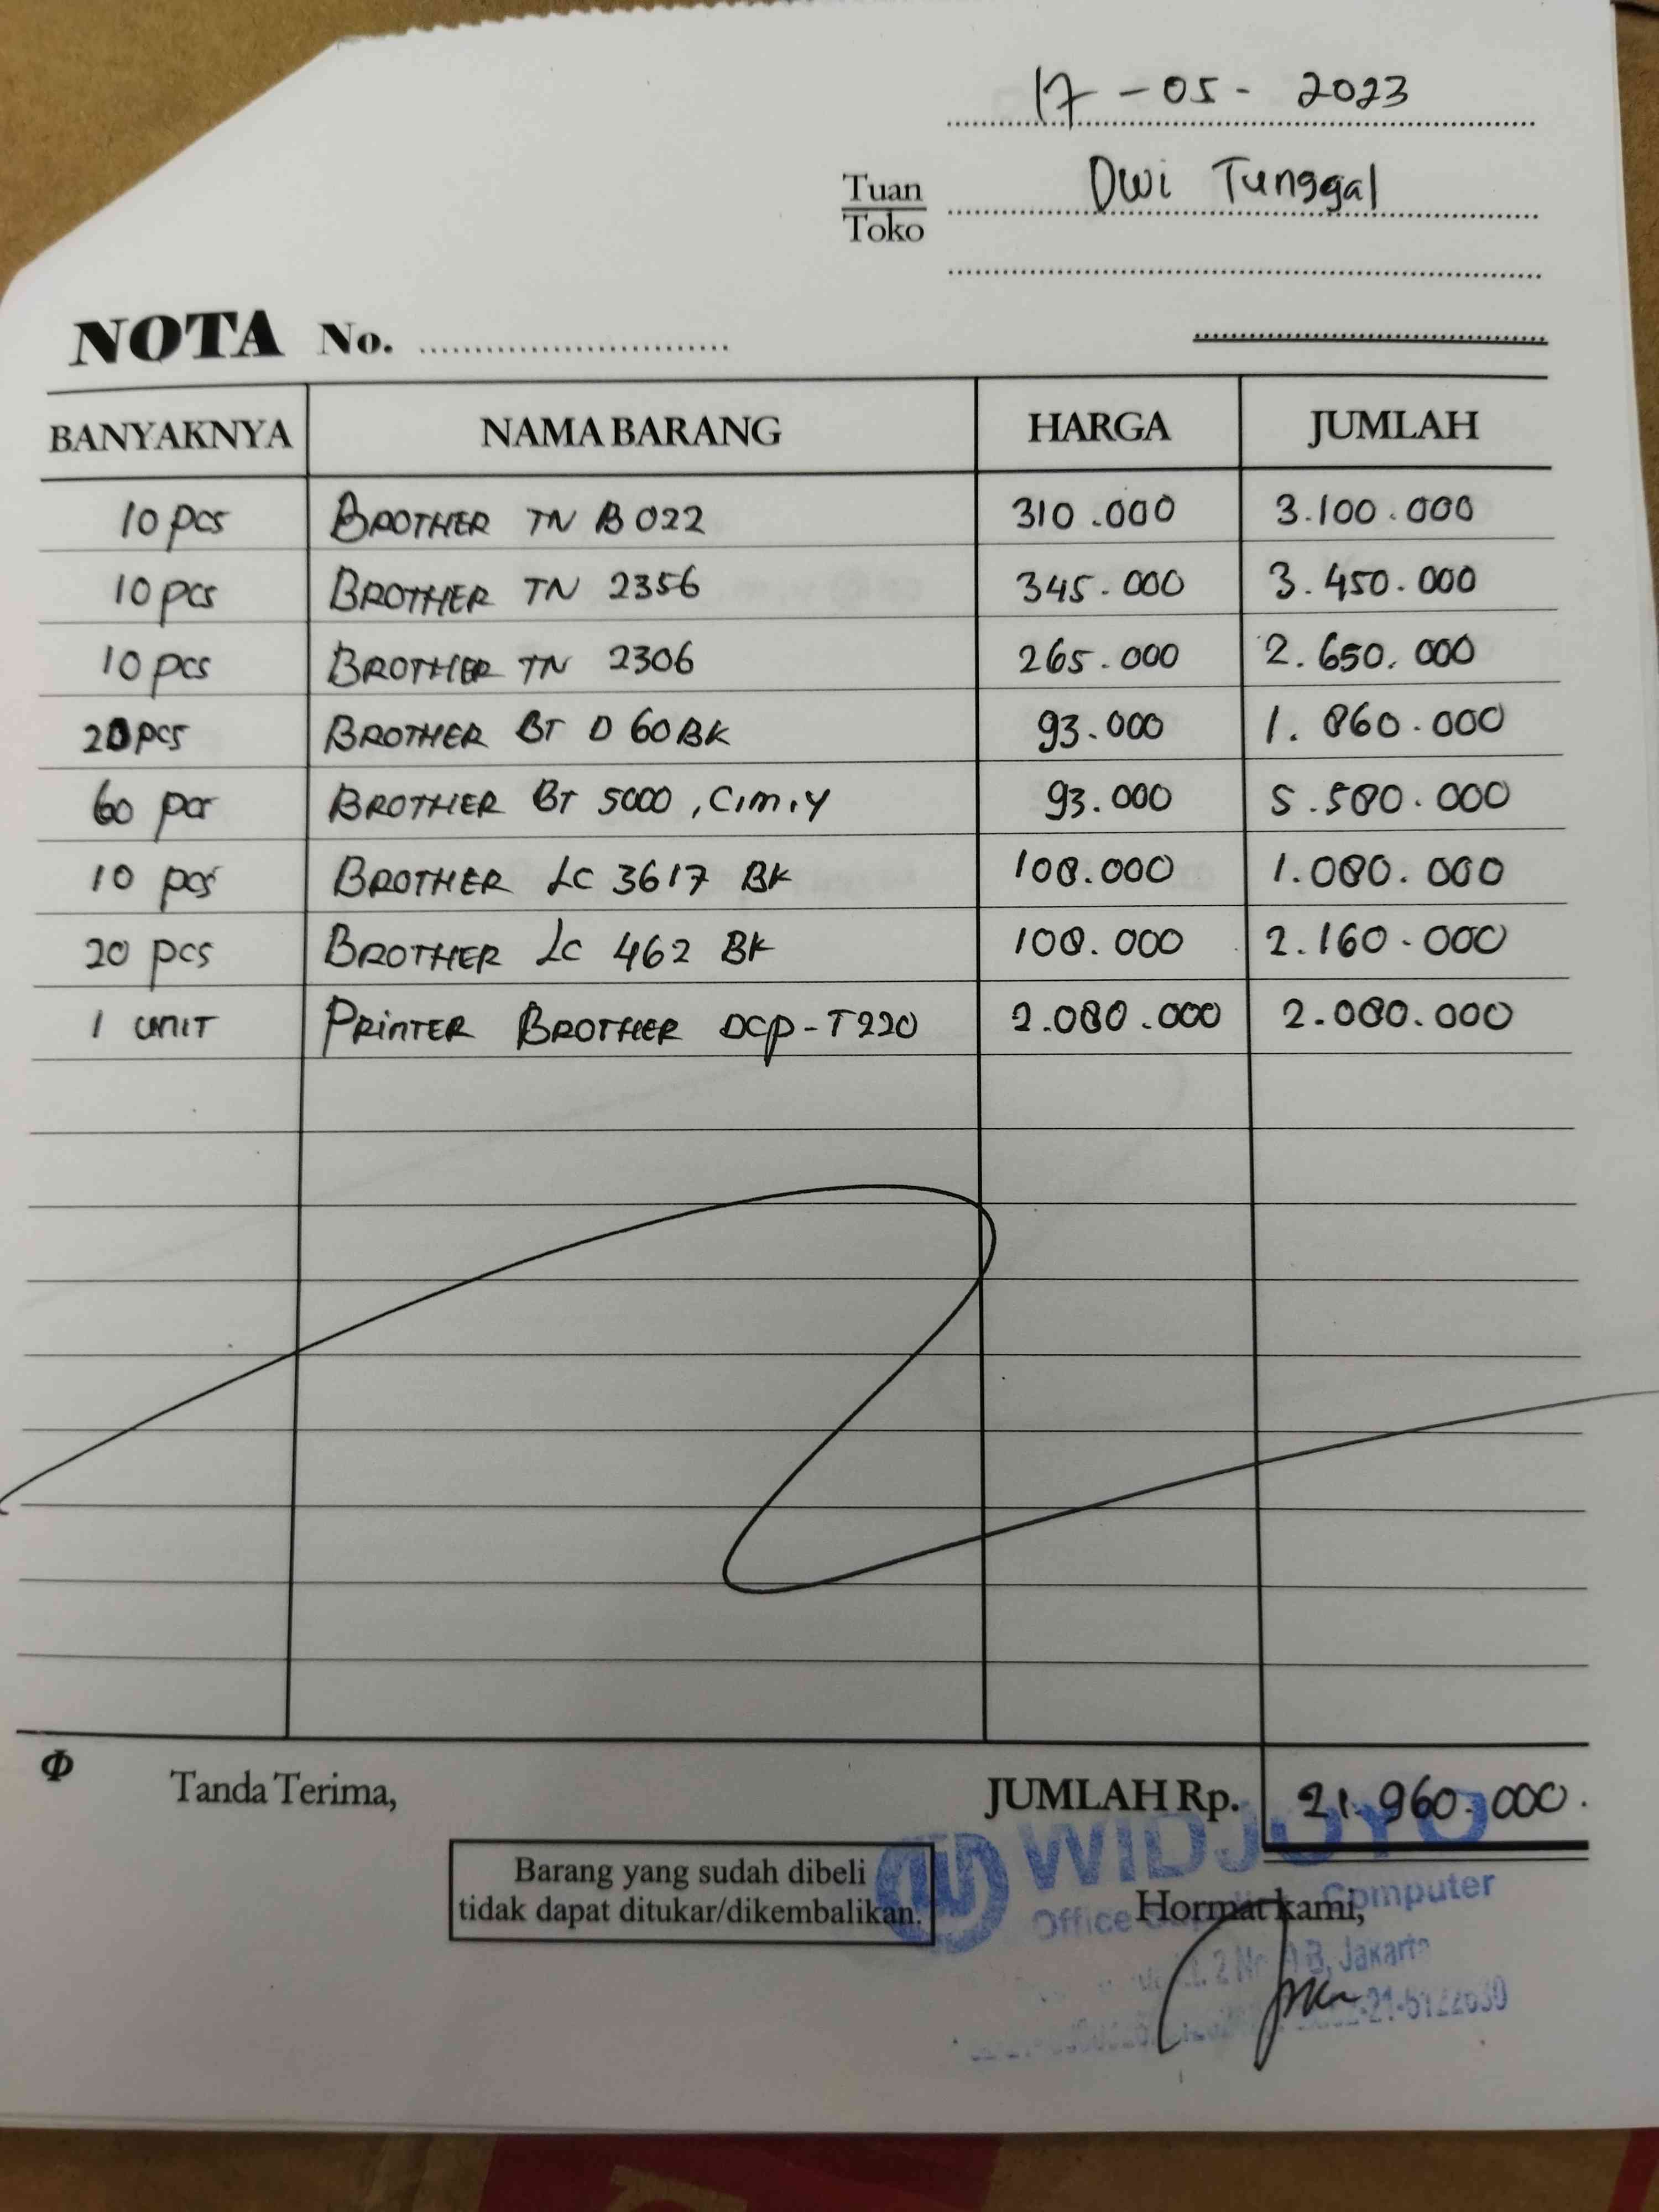 17-05-2023
Tuan
Toko
Dwi Tunggal
NOTA No.
BANYAKNYA NAMA BARANG HARGA JUMLAH
10 pcs BROTHER TN B022 310.000 3.100.000
10 pcs BROTHER TN 2356 345.000 3.450.000
10 pcs BROTHER TN 2306 265.000 2.650.000
20 pcs BROTHER BT D60BK 93.000 1.860.000
60 pcs BROTHER BT 5000, C,M,Y 93.000 5.580.000
10 pcs BROTHER LC 3617 BK 108.000 1.080.000
20 pcs BROTHER LC 462 BK 108.000 2.160.000
1 UNIT PRINTER BROTHER DCP-T220 2.080.000 2.080.000
Tanda Terima, JUMLAH Rp. 21.960.000.
Barang yang sudah dibeli
tidak dapat ditukar/dikembalikan.
WIDJOYO
Office Computer
Hormat kami,
Lt. 2 No. B, Jakarta